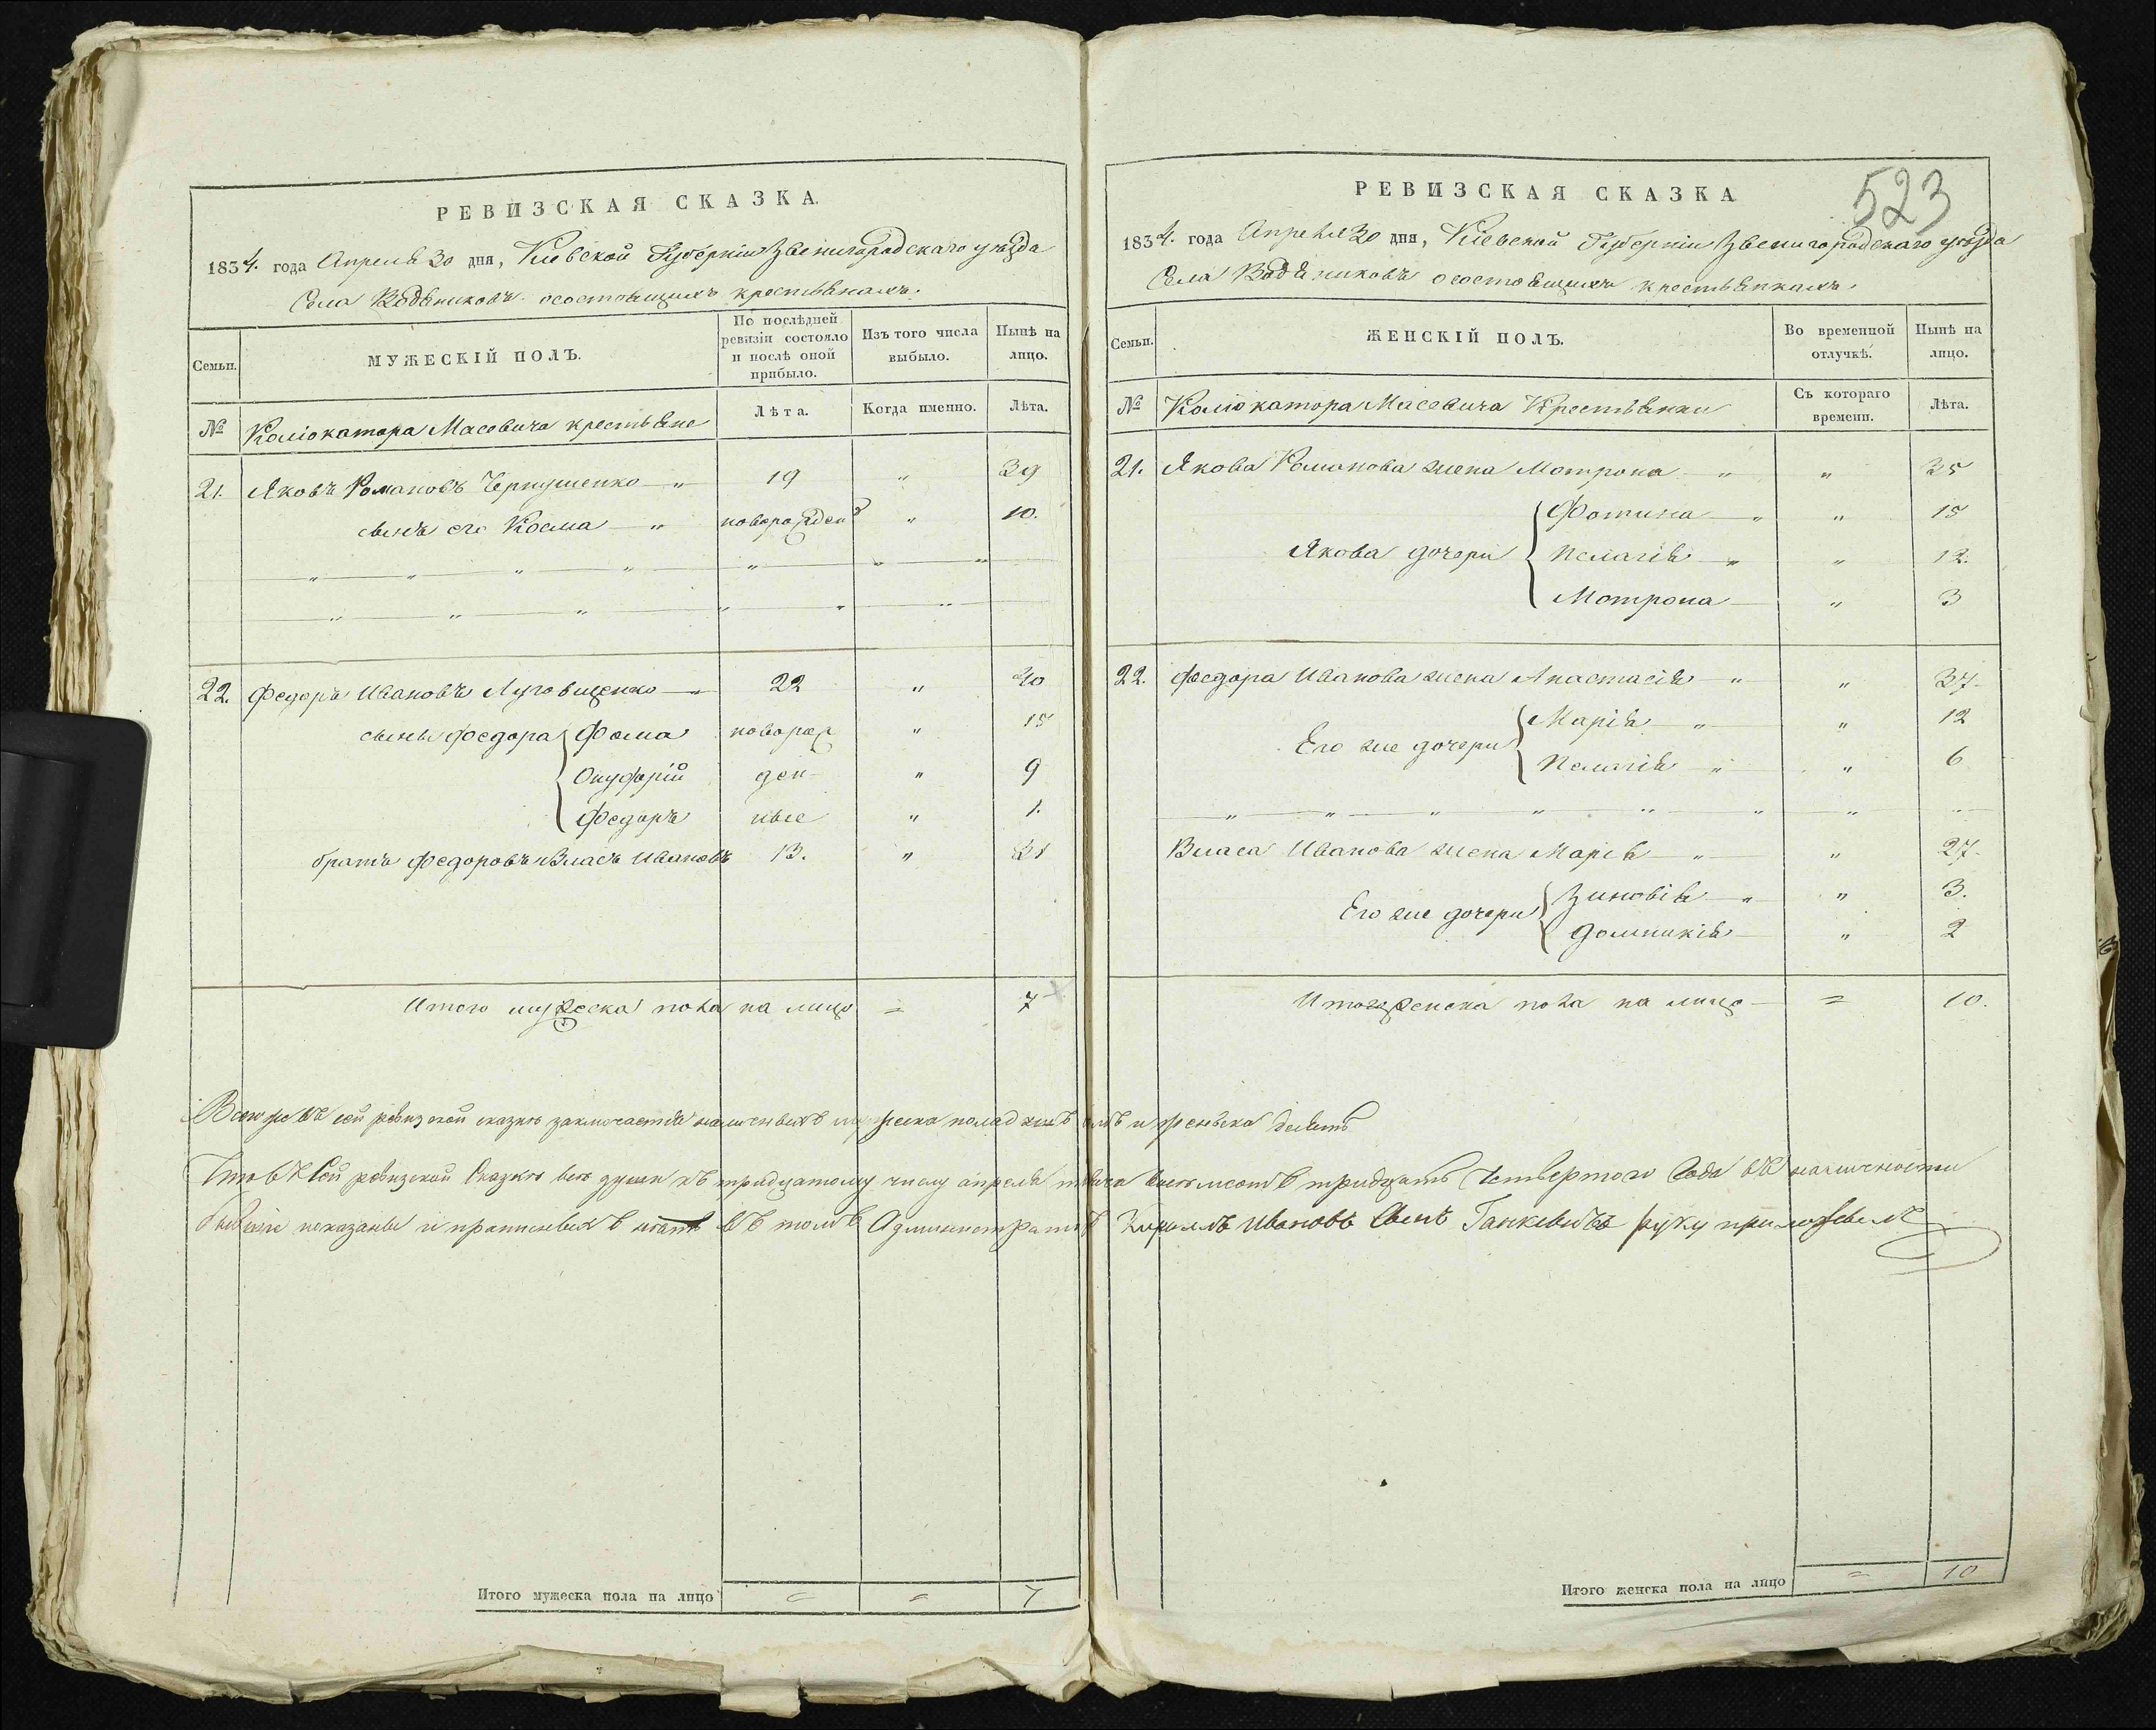 РЕВИЗСКАЯ СКАЗКА.
1834. года Апреля 30 дня, Киевской Губернии Звенигородскаго уезда
Села Водяниковъ о состоящихъ крестьянахъ.
Семьи.
МУЖЕСКІЙ ПОЛЪ.
По послѣдней ревизіи состояло и послѣ оной прибыло.
Изъ того числа выбыло.
Нынѣ на лицо.
№
Коліокатора Масевича крестьяне
Лѣта.
Когда именно.
Лѣта.
21. Яковъ Романовъ Чернушенко — " 19 " 39
сынъ его Косма — " новорожден " 10.
22. Федоръ Ивановъ Луговщенко — " 22 " 40
сыны Федора Фома новорож " 15
Онуфрій ден- " 9
Федоръ ные " 1.
братъ Федоровъ Власъ Ивановъ 13. " 31
Итого мужеска пола на лицо = 7
Итого мужеска пола на лицо = = 7
523
РЕВИЗСКАЯ СКАЗКА
1834. года Апреля 30 дня, Кіевской Губерніи Звенигородскаго уезда
Села Водяниковъ о состоящихъ крестьянкахъ.
Семьи.
ЖЕНСКІЙ ПОЛЪ.
Во временной отлучкѣ.
Нынѣ на лицо.
№
Коліокатора Масевича Крестьянки
Съ котораго времени.
Лѣта.
21. Якова Романова жена Мотрона " " 35
Якова дочери Фотина — " " 15
Пелагія — " " 12.
Мотрона — " 3
22. Федора Иванова жена Анастасія — " " 37-
Его же дочери Марія — " " 12
Пелагія — " " 6
Власа Иванова жена Марія — " " 27-
Его же дочери Зиновія — " " 3.
Домникія " 2
Итого женска пола на лицо — = 10.
Всего же въ сей ревизской сказке заключается наличныхъ мужеска пола душъ и женска десять
Что въ сей ревизской Сказке все души къ тридцатому числу апреля тысяча восемсотъ тридцать Четвертого Года въ наличности
показаны и прописныхъ нетъ въ томъ Администраторъ Кириллъ Ивановъ Сынъ Ганкевичъ руку приложилъ
Итого женска пола на лицо = 10